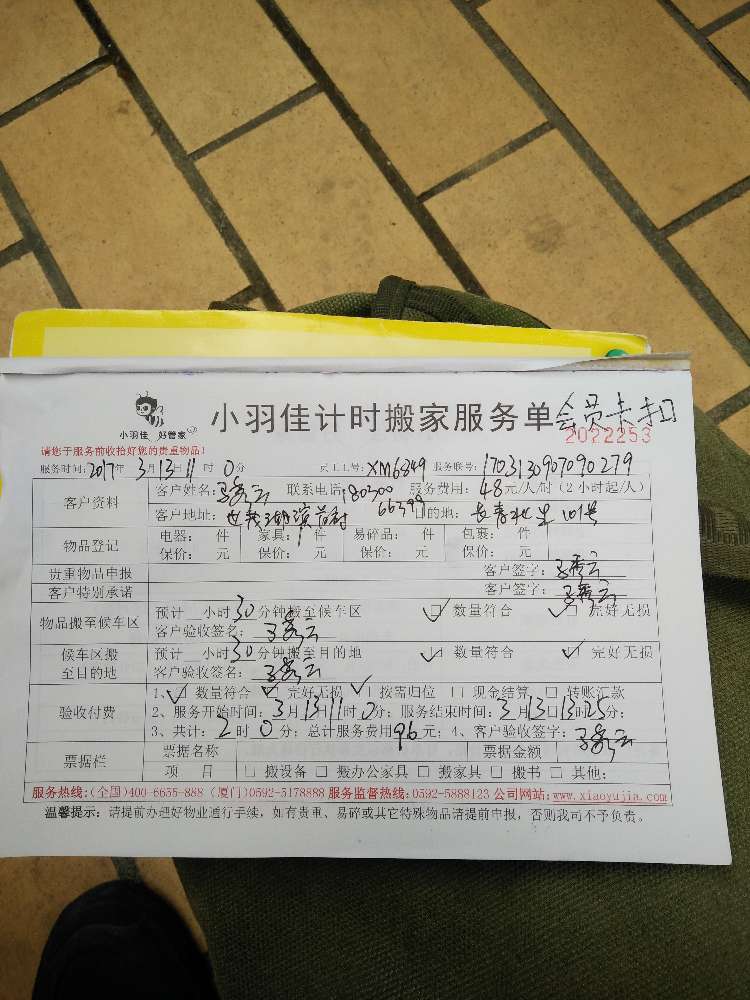 小羽佳计时搬家服务单 会员卡扣
小羽佳 好管家
2022253
请您于服务前收拾好您的贵重物品!
服务时间:2017年3月13日11时0分 员工工号:XM6849 服务联号:1703130907090279
客户资料
客户姓名: 联系电话:180300 66399 服务费用:48元/人/时(2小时起/人)
客户地址: 目的地:
物品登记
电器: 件 家具: 件 易碎品: 件 包裹: 件
保价: 元 保价: 元 保价: 元 保价: 元
贵重物品申报 客户签字:
客户特别承诺 客户签字:
物品搬至候车区
预计 小时30分钟搬至候车区 数量符合 完好无损
客户验收签名:
候车区搬至目的地
预计 小时30分钟搬至目的地 数量符合 完好无损
客户验收签名:
验收付费
1、 数量符合 完好无损 按需归位 现金结算 转账汇款
2、服务开始时间:3月13日11时0分;服务结束时间:3月13日13时25分;
3、共计:2时0分;总计服务费用96元;4、客户验收签字:
票据栏
票据名称 票据金额
项 目 □搬设备 □搬办公家具 □搬家具 □搬书 □其他:
服务热线:(全国)400-6655-888 (厦门)0592-5178888 服务监督热线:0592-5888123 公司网站:www.xiaoyujia.com
温馨提示:请提前办理好物业通行手续,如有贵重、易碎或其它特殊物品请提前申报,否则我司不予负责。